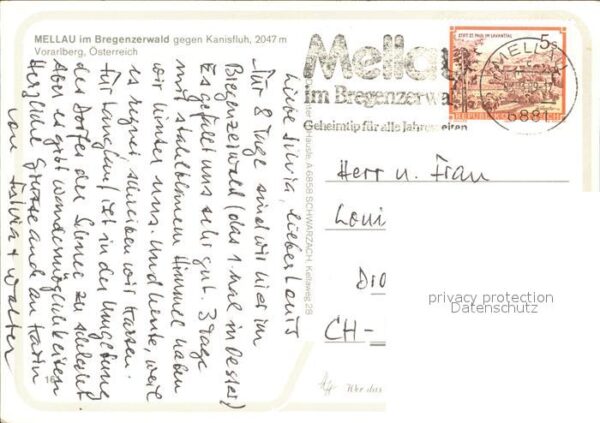 MELLAU im Bregenzerwald gegen Kanisfluh, 2047 m
Vorarlberg, Österreich
Liebe Silvia, lieber Louis
Für 8 Tage sind wir hier im
Bregenzerwald (das 1. Mal in Oester.)
Es gefällt uns sehr gut. 3 Tage
mit stahlblauem Himmel haben
wir hinter uns. Und heute, weil
es regnet schreiben wir Karten.
Für Langlauf ist in der Umgebung
des Dorfes der Schnee zu schlecht.
Aber es gibt Wandermöglichkeiten
Herzliche Grüsse auch an Karin
von Fulvia + Walter
Mellau
im Bregenzerwald
Geheimtip für alle Jahreszeiten
STIFT ST. PAUL IM LAVANTTAL
5 S
REPUBLIK ÖSTERREICH
MELLAU
688
A 6858 SCHWARZACH, Kellaweg 28
Herr u. Frau
Loui
CH-
privacy protection
Datenschutz
16
Wer das